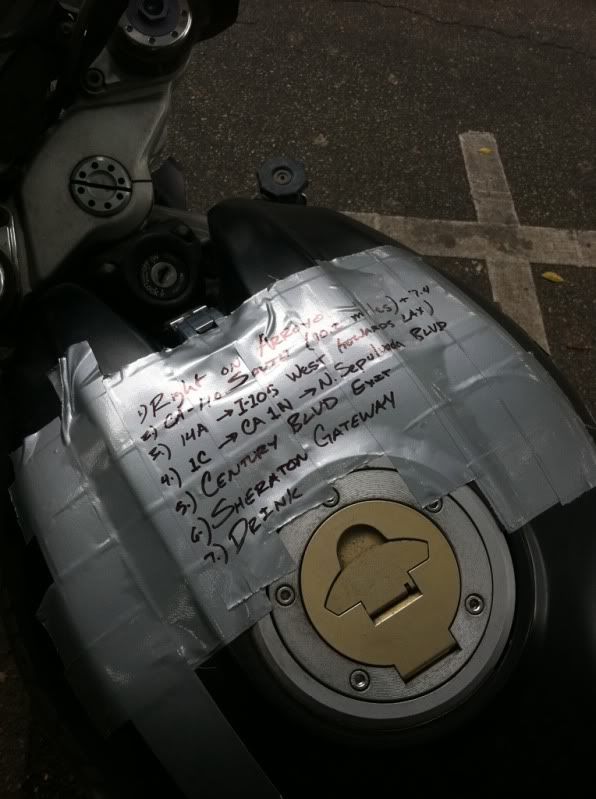 1) Right on Arroyo
2) CA-110 South (10.2 miles) + 7.4
3) 14A → I-105 West towards LAX)
4.) 1C → CA 1N → N. Sepulveda BLVD
5.) Century BLVD Exit
6.) Sheraton Gateway
7.) Drink